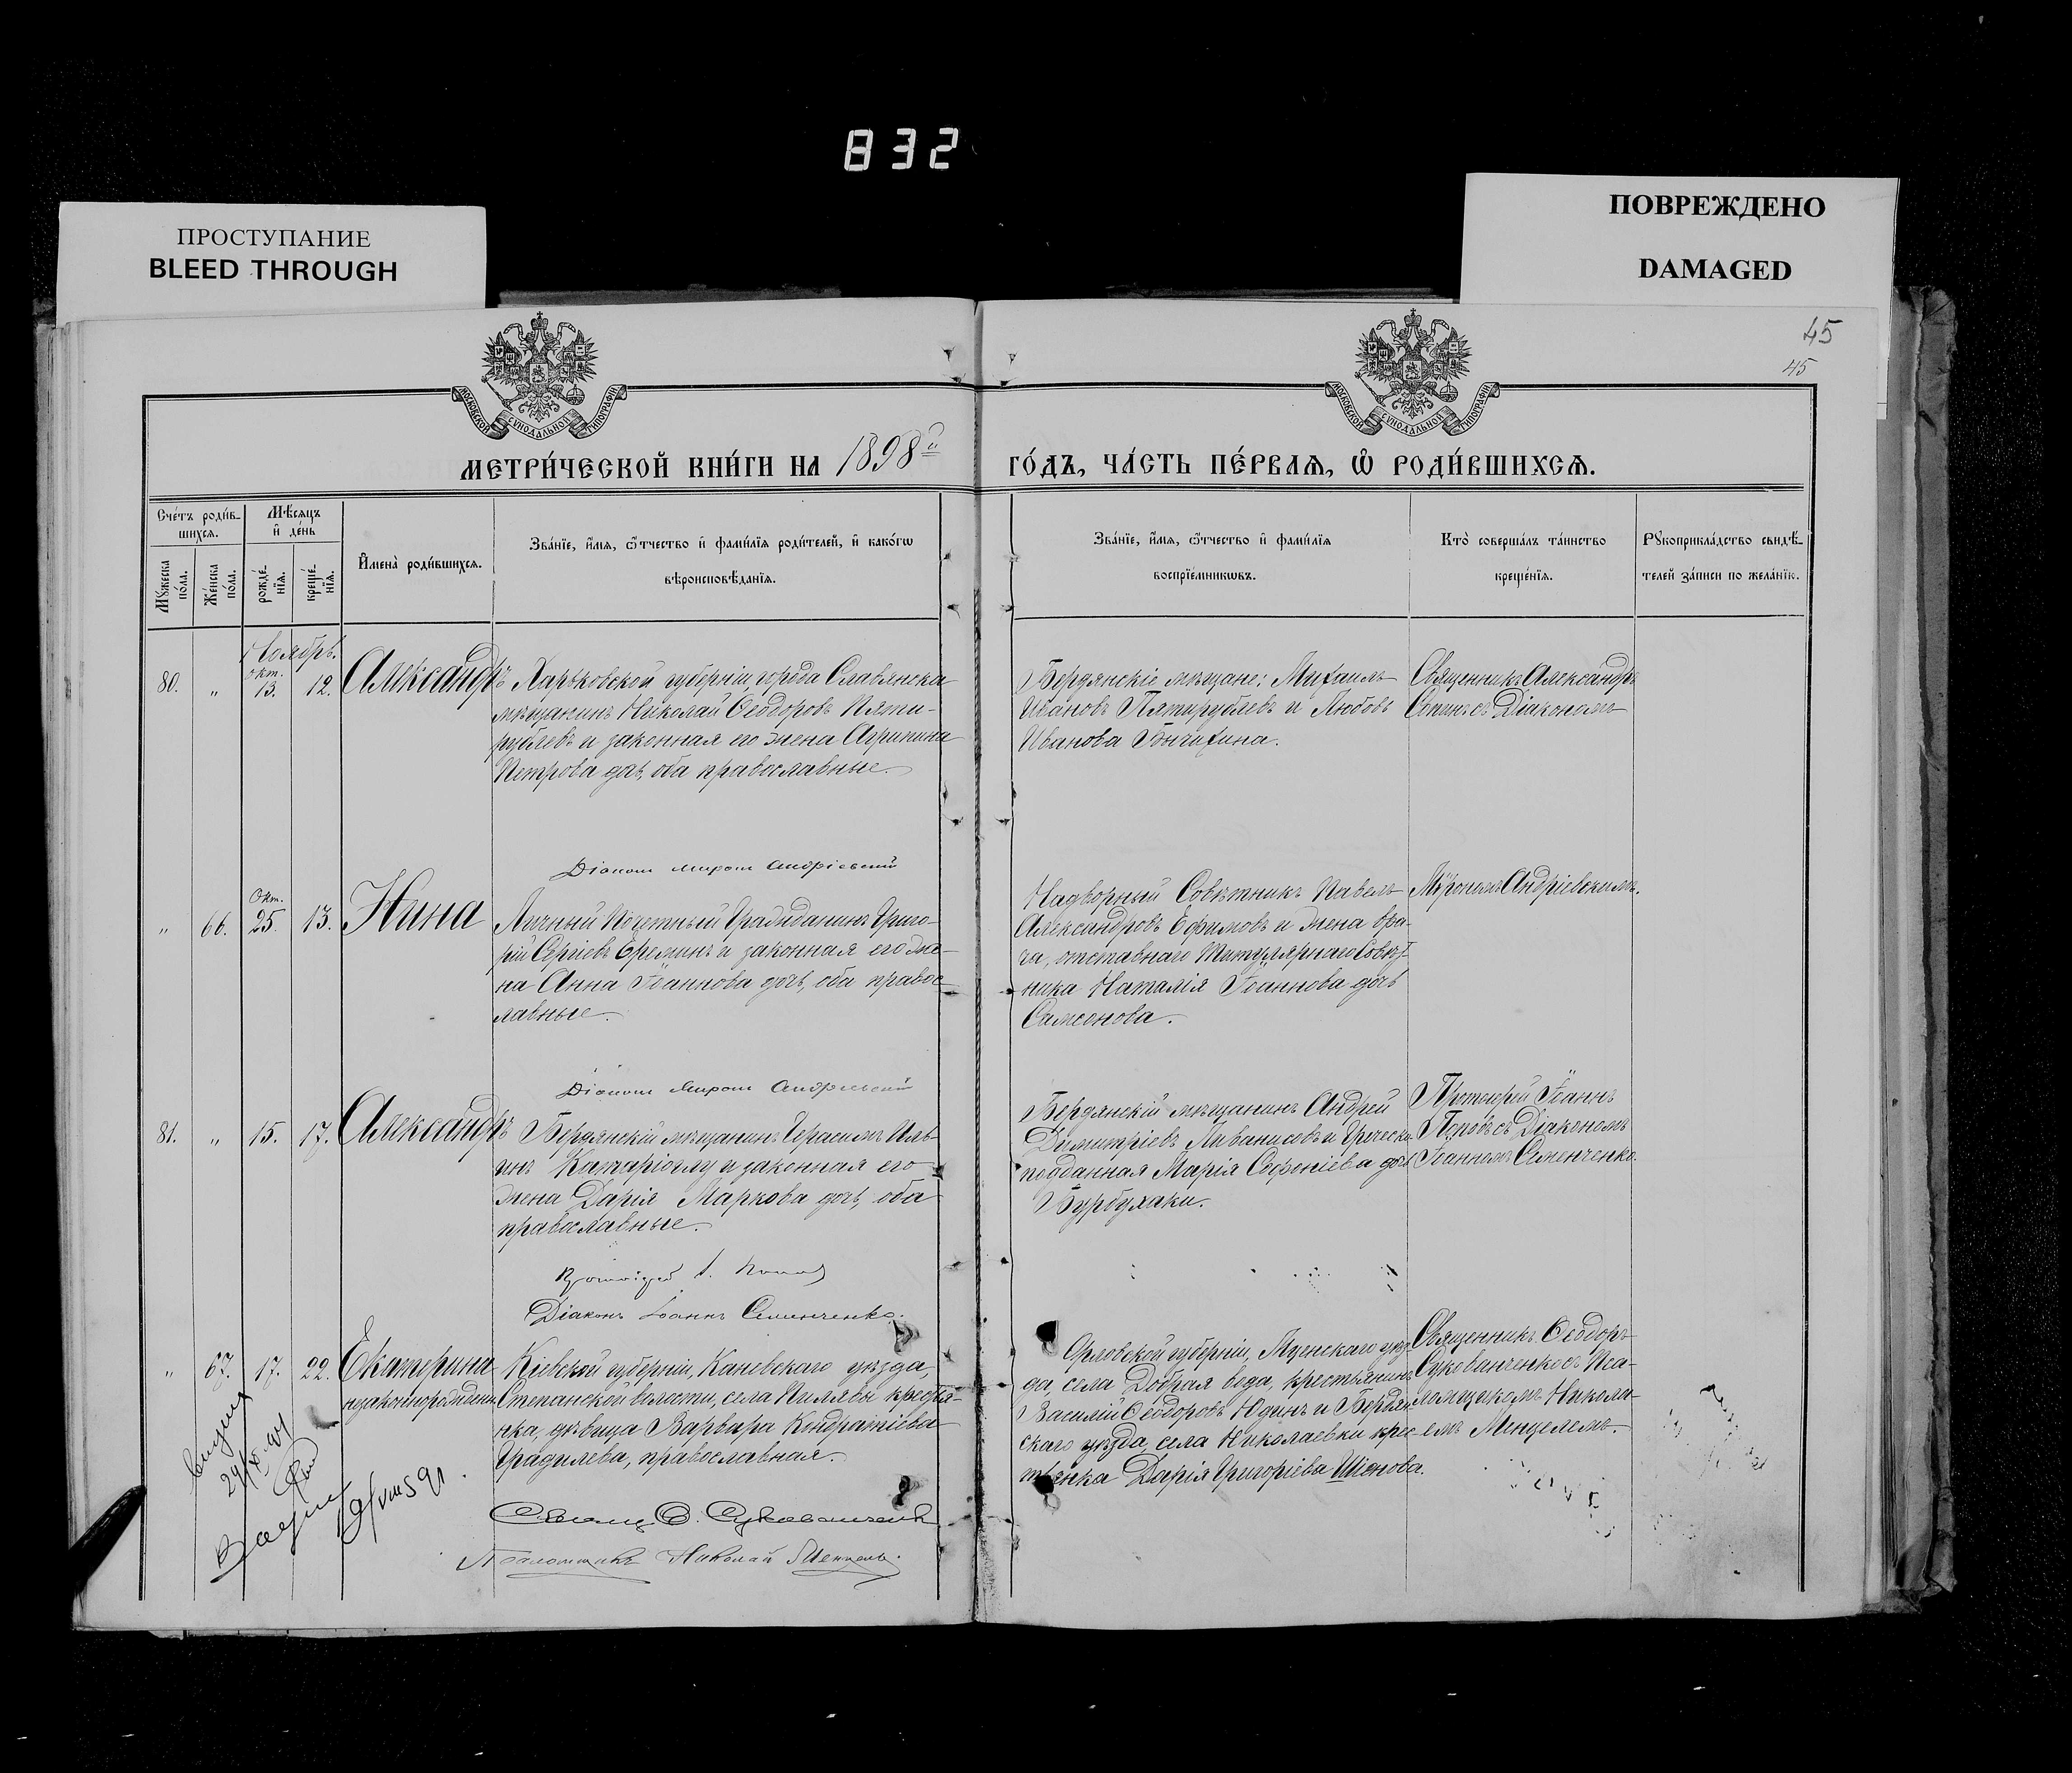 832
ПРОСТУПАНИЕ
BLEED THROUGH
ПОВРЕЖДЕНО
DAMAGED
45
45
МОСКОВСКОЙ СѴНОДАЛЬНОЙ ТИПОГРАФІИ
МОСКОВСКОЙ СѴНОДАЛЬНОЙ ТИПОГРАФІИ
МЕТРИ́ЧЕСКОЙ КНИ́ГИ НА 1898й
ГО́ДЪ, ЧА́СТЬ ПЕ́РВАѦ, Ѡ҆ РОДИ́ВШИХСѦ.
Сче́тъ роди́в-
шихсѧ.
Мѣ́сѧцъ
и҆ де́нь
Мꙋ́жеска по́ла.
Же́нска по́ла.
рожде́-нїѧ.
креще́-нїѧ.
И҆мена̀ роди́вшихсѧ.
Зва́нїе, и҆́мѧ, ѻ҆́тчество и҆ фами́лїѧ роди́телей, и҆ како́гѡ
вѣроисповѣ́данїѧ.
Зва́нїе, и҆́мѧ, ѻ҆́тчество и҆ фами́лїѧ
воспрїе́мникѡвъ.
Кто̀ соверша́лъ та́инство
креще́нїѧ.
Рꙋкоприкла́дство свидѣ́-
телей за́писи по жела́нїю.
Ноябрь.
80. " окт. 13. 12. Александръ
Харьковской губерніи, города Славянска
мѣщанинъ Николай Ѳеодоровъ Пяти-
рублевъ и законная его жена Агрипина
Петрова дочь, оба православные.
Бердянскіе мѣщане: Михаилъ
Ивановъ Пятирублевъ и Любовь
Иванова Бычихина.
Священникъ Александръ
съ Діакономъ
Діаконъ Миронъ Андріевскій
" 66. Окт. 25. 13. Нина
Личный Почетный Гражданинъ Григо-
рій Сергіевъ Ереминъ и законная его же-
на Анна Іоаннова дочь, оба правос-
лавные.
Надворный Совѣтникъ Павелъ
Александровъ Ефимовъ и жена вра-
ча, отставнаго Титулярнаго Совѣт-
ника Наталія Іоаннова дочь
Самсонова.
Мѵрономъ Андріевскимъ.
Діаконъ Миронъ Андріевскій
81. " 15. 17. Александръ
Бердянскій мѣщанинъ Герасимъ Иль-
инъ Катаріоглу и законная его
жена Дарія Маркова дочь, оба
православные.
Бердянскій мѣщанинъ Андрей
Димитріевъ Ливанисовъ и Греческо-
подданная Марія Софоніева дочь
Бурбухаки.
Протоіерей Іоаннъ
Поповъ съ Діакономъ
Іоанномъ Семенченко.
Протоіерей І. Поповъ
Діаконъ Іоаннъ Семенченко.
" 67. 17. 22. Екатерина
незаконнорожденн.
Кіевской губерніи, Каневскаго уѣзда,
Степанской волости, села Пилявы крестья-
нка, дѣвица Варвара Кондратіева
Градилева, православная.
Орловской губерніи, Мценскаго уѣз-
да, села Добрая вода, крестьянинъ
Василій Ѳеодоровъ Юдинъ и Бердян-
скаго уѣзда, села Николаевки крес-
тьянка Дарія Григоріева Шіонова.
Священникъ Ѳеодоръ
Сукованченко съ Пса-
ломщикомъ Никола-
емъ Менцелемъ.
Священ. Ѳ. Сукованченко
Псаломщикъ Николай Менцель.